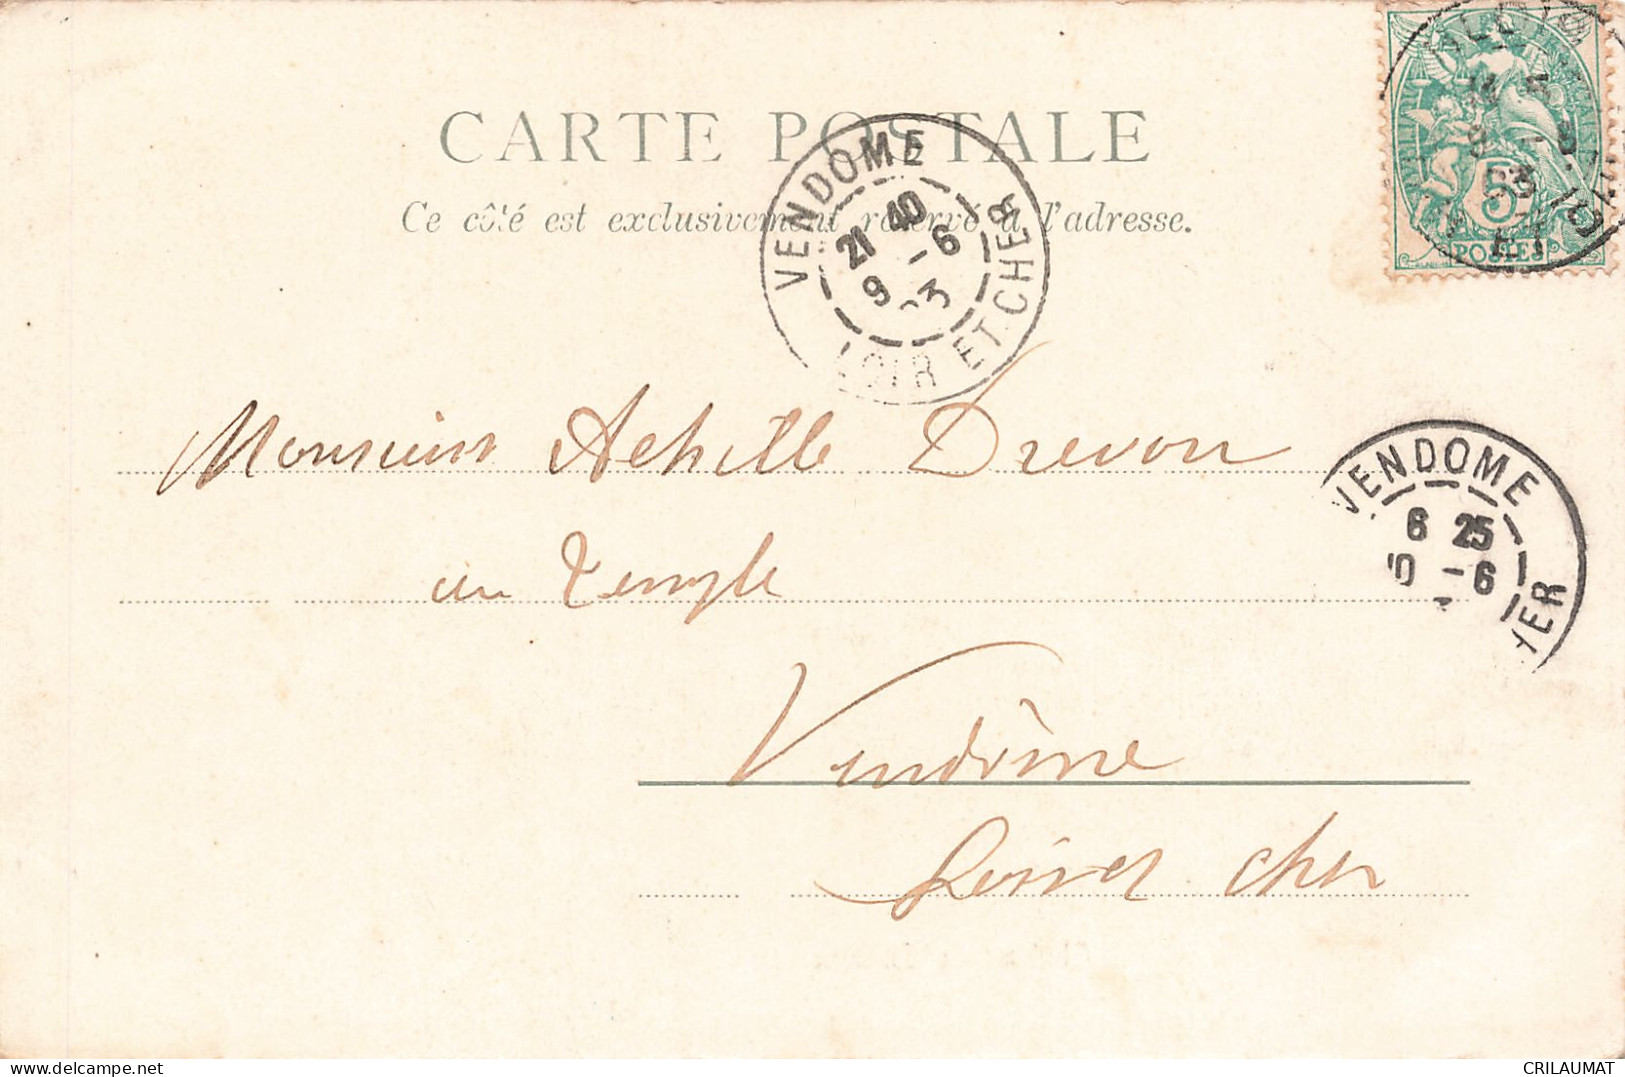 CARTE POSTALE
Ce côté est exclusivement réservé à l'adresse.
VENDOME
21 40
9 -6
03
LOIR ET CHER
5
POSTES
Monsieur Achille Drevon
au Temple
VENDOME
6 25
10 -6
HER
Vendôme
Loir et Cher
CRILAUMAT